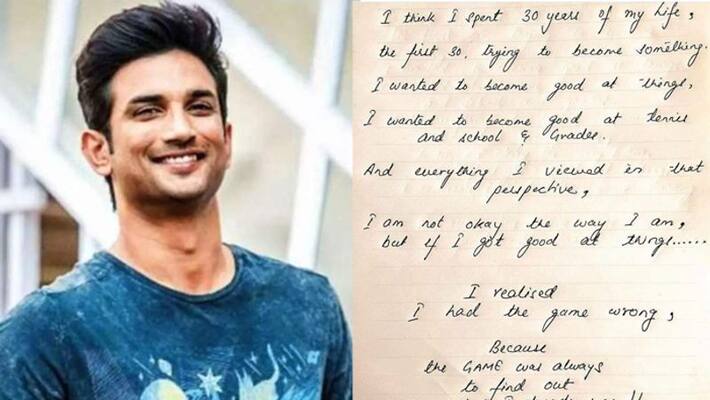 I think I spent 30 years of my life,
the first 30, trying to become something.
I wanted to become good at things,
I wanted to become good at tennis
and school & Grades.
And everything I viewed in that
perspective,
I am not okay the way I am,
but if I got good at things......
I realised
I had the game wrong,
Because
the GAME was always
to find out